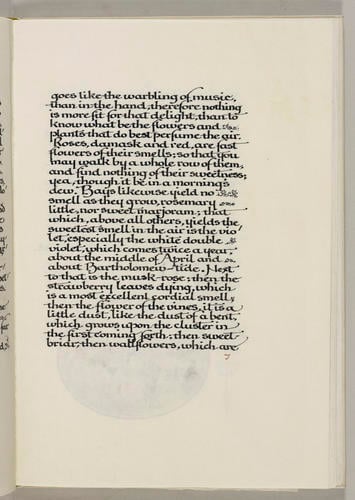 goes like the warbling of music,
than in the hand, therefore nothing
is more fit for that delight, than to
know what be the flowers and
plants that do best perfume the air.
Roses, damask and red, are fast
flowers of their smells; so that you
may walk by a whole row of them,
and find nothing of their sweetness;
yea, though it be in a morning's
dew. Bays likewise yield no
smell as they grow, rosemary
little, nor sweet marjoram; that
which, above all others, yields the
sweetest smell in the air is the vio
let, especially the white double
violet, which comes twice a year,
about the middle of April and
about Bartholomew-tide. Next
to that is the musk-rose; then the
strawberry leaves dying, which
is a most excellent cordial smell;
then the flower of the vines, it is a
little dust, like the dust of a bent,
which grows upon the cluster in
the first coming forth; then sweet
briar, then wallflowers, which are
7